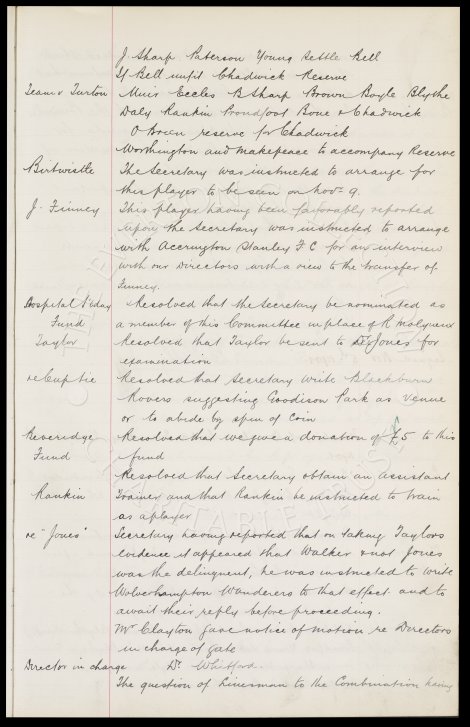 J. Sharp Paterson Young Settle Bell
If Bell unfit Chadwick Reserve
Team v Turton Muir Eccles B Sharp Brown Boyle Blythe
Daly Rankin Proudfoot Bone & Chadwick
O'Brien reserve for Chadwick
Worthington and Makepeace to accompany Reserve
Birtwistle The Secretary was instructed to arrange for
this player to be seen on Novr 9.
J. Finney This player having been favorably reported
upon the Secretary was instructed to arrange
with Accrington Stanley F.C. for an interview
with our Directors with a view to the transfer of
Finney.
Hospital Friday Resolved that the Secretary be nominated as
Fund a member of this Committee in place of R Molyneux
Taylor Resolved that Taylor be sent to Dr Jones for
examination
re Cup tie Resolved that Secretary write Blackburn
Rovers suggesting Goodison Park as venue
or to abide by spin of coin
Beveridge Resolved that we give a donation of £5 to this
Fund fund
Resolved that Secretary obtain an assistant
Rankin Trainer and that Rankin be instructed to train
as a player
re "Jones" Secretary having reported that on taking Taylors
evidence it appeared that Walker & not Jones
was the delinquent, he was instructed to write
Wolverhampton Wanderers to that effect and to
await their reply before proceeding.
Mr Clayton gave notice of motion re Directors
in charge of gate
Director in charge Dr Whitford.
The question of Linesman to the Combination having